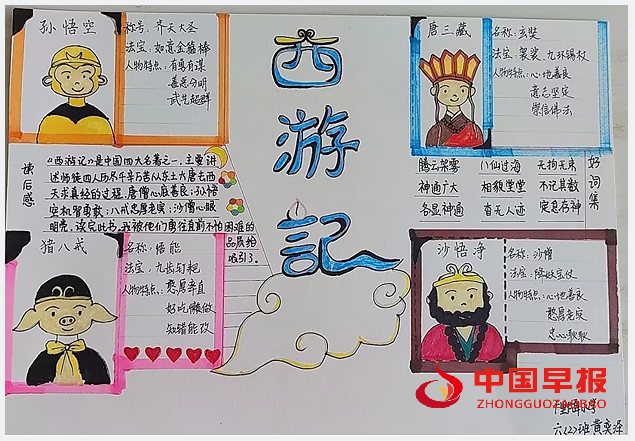 孙悟空
称号：齐天大圣
法宝：如意金箍棒
人物特点：有勇有谋
善恶分明
武艺超群
西游記
唐三藏
名称：玄奘
法宝：袈裟、九环锡杖
人物特点：心地善良
意志坚定
崇信佛法
读后感
《西游记》是中国四大名著之一，主要讲
述师徒四人历尽千辛万苦从东土大唐去西
天求真经的过程，唐僧心慈善良；孙悟
空机智勇敢；八戒忠厚老实；沙僧心眼
明亮，读完此书，我被他们勇往直前不怕困难的
品质给
吸引了。
好词集
腾云驾雾 八仙过海 无拘无束
神通广大 相貌堂堂 不记其数
各显神通 杳无人迹 定息存神
猪八戒
名称：悟能
法宝：九齿钉耙
人物特点：憨厚率直
好吃懒做
知错能改
沙悟净
名称：沙僧
法宝：降妖宝杖
人物特点：心地善良
憨厚老实
忠心耿耿
中国早报
ZHONGGUOZAOBAO
六(2)班黄奕泽